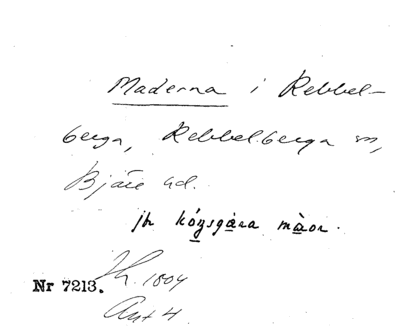 Maderna i Rebbel-
berga, Rebbelberga sn,
Bjäre hd.
jfr kóŋsgàra màor.
Nr 7213.
1804
Ant 4